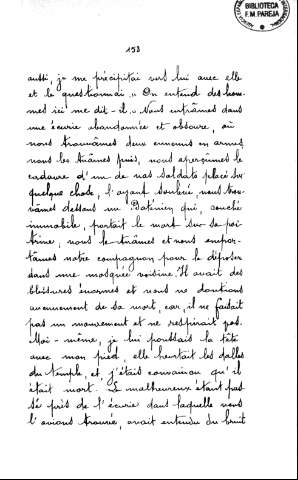 BIBLIOTECA
F.M. PAREJA
153
aussi, je me précipitai vers lui avec elle
et le questionnai. "On entend des hom-
mes ici me dit-il." Nous entrâmes dans
une écurie abandonnée et obscure, où
nous trouvâmes deux ennemis en armes,
nous les tuâmes puis, nous aperçûmes le
cadavre d'un de nos soldats placé sur
quelque chose, l'ayant soulevé, nous trou-
vâmes dessous un Baténien qui, couché
immobile, portait le mort sur sa poi-
trine; nous le tuâmes et nous empor-
tâmes notre compagnon pour le déposer
dans une mosquée voisine. Il avait des
blessures énormes et nous ne doutions
aucunement de sa mort, car, il ne faisait
pas un mouvement et ne respirait pas.
Moi-même, je lui poussais la tête
avec mon pied, elle heurtait les dalles
du temple, et j'étais convaincu qu'il
était mort. Le malheureux étant pas-
sé près de l'écurie dans laquelle nous
l'avions trouvé, avait entendu du bruit